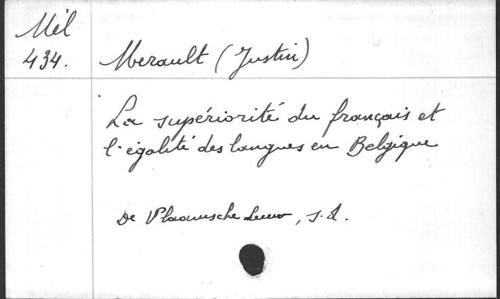 Mél
434.
Merault (Justin)
La supériorité du français et
l'égalité des langues en Belgique
De Vlaamsche Leeuw, s.d.